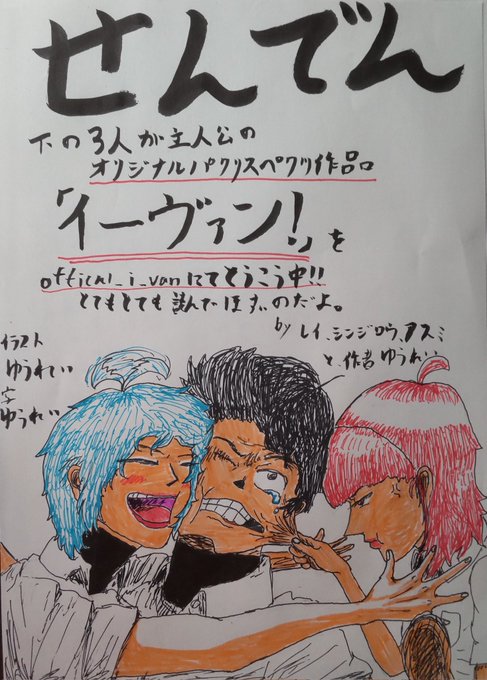 せんでん
下の3人が主人公の
オリジナルパクリスペクツ作品
「イーヴァン!」を
official_i_vanにてとうこう中!!
とてもとても読んでほすぃのだよ。
by レイ、シンジロウ、アスミ
と、作者 ゆうれい
イラスト
ゆうれい
字
ゆうれい